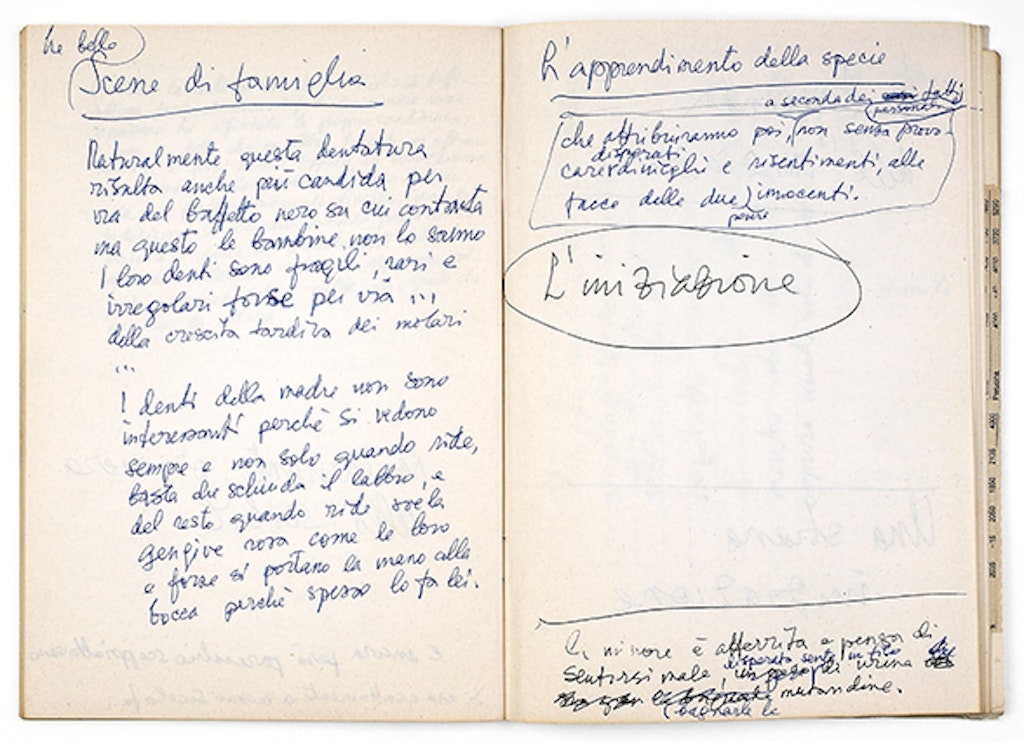 Scene di famiglia
Naturalmente questa dentatura
risulta anche più candida per
via del baffetto nero su cui contrasta
ma questo le bambine non lo sanno
I loro denti sono fragili, rari e
irregolari forse per via ...
della crescita tardiva dei molari
...
I denti della madre non sono
interessanti perchè si vedono
sempre e non solo quando ride,
basta che schiuda il labbro, e
del resto quando ride svela
gengive rosa come le loro
e forse si portano la mano alla
bocca perchè spesso lo fa lei.
L'apprendimento della specie
a seconda dei fatti
che attribuiranno poi, non senza provo-
disperati
care e risentimenti, alle
facce delle due innocenti.
povere
L'iniziazione
La minore è afferrata e pensa di
sentirsi male, disperata sente un filo
di urina
mutandine.
bagnarle le